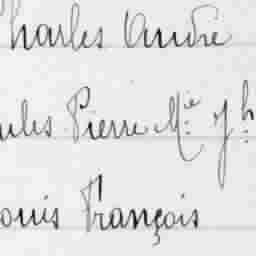 Charles André
ules Pierre M.ie J.h
ouis François